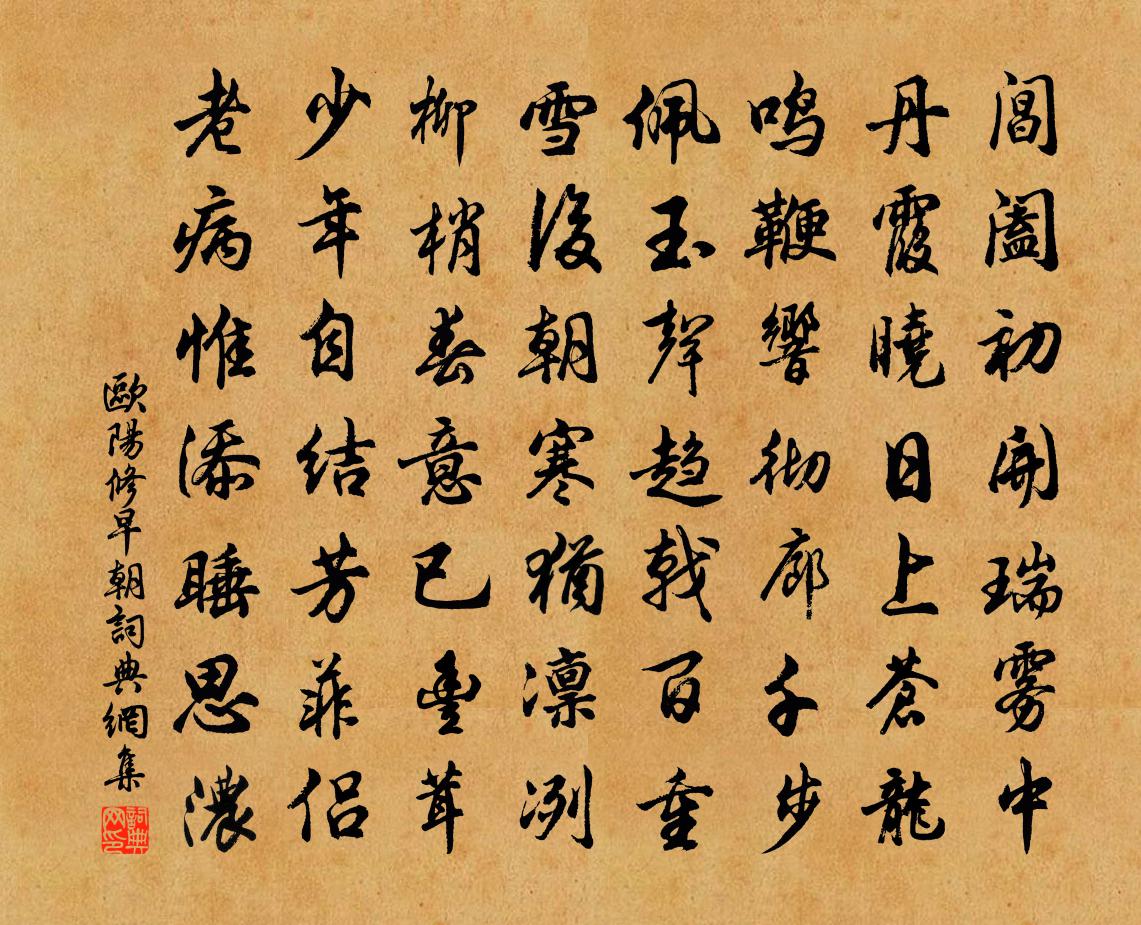 閶闔初開瑞雾中
丹霞曉日上蒼龍
鳴鞭響彻廊千步
佩玉聲趋戟百重
雪後朝寒猶凛冽
柳梢春意已豐茸
少年自結芳菲侣
老病惟添睡思濃
歐陽修早朝詞典網集
詞典网印